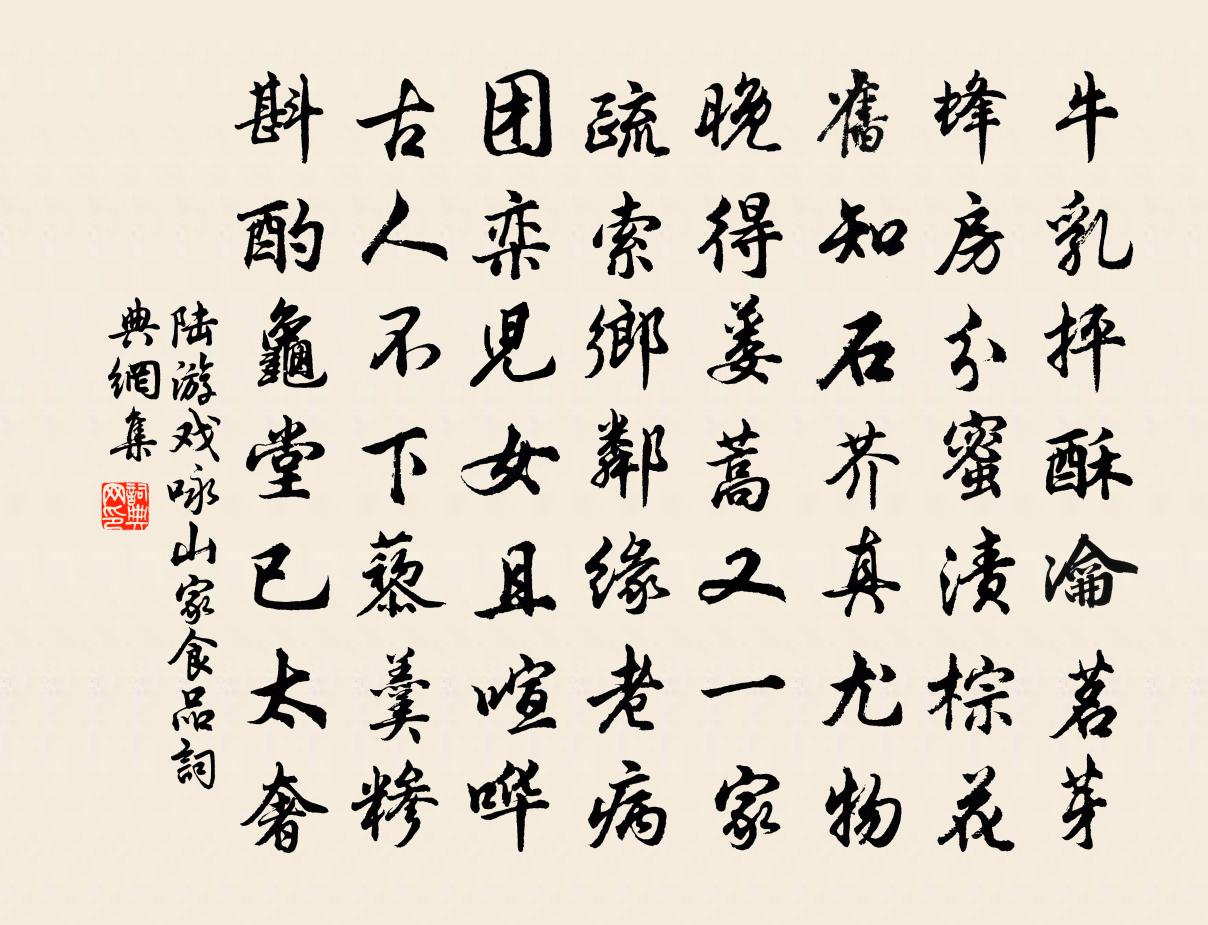 牛乳抨酥瀹茗芽
蜂房分蜜漬棕花
舊知石芥真尤物
晚得蔞蒿又一家
疏索鄉鄰緣老病
团栾児女且喧哗
古人不下藜羹糝
斟酌龜堂已太奢
陆游戏咏山家食品詞
典網集
詞典
网印